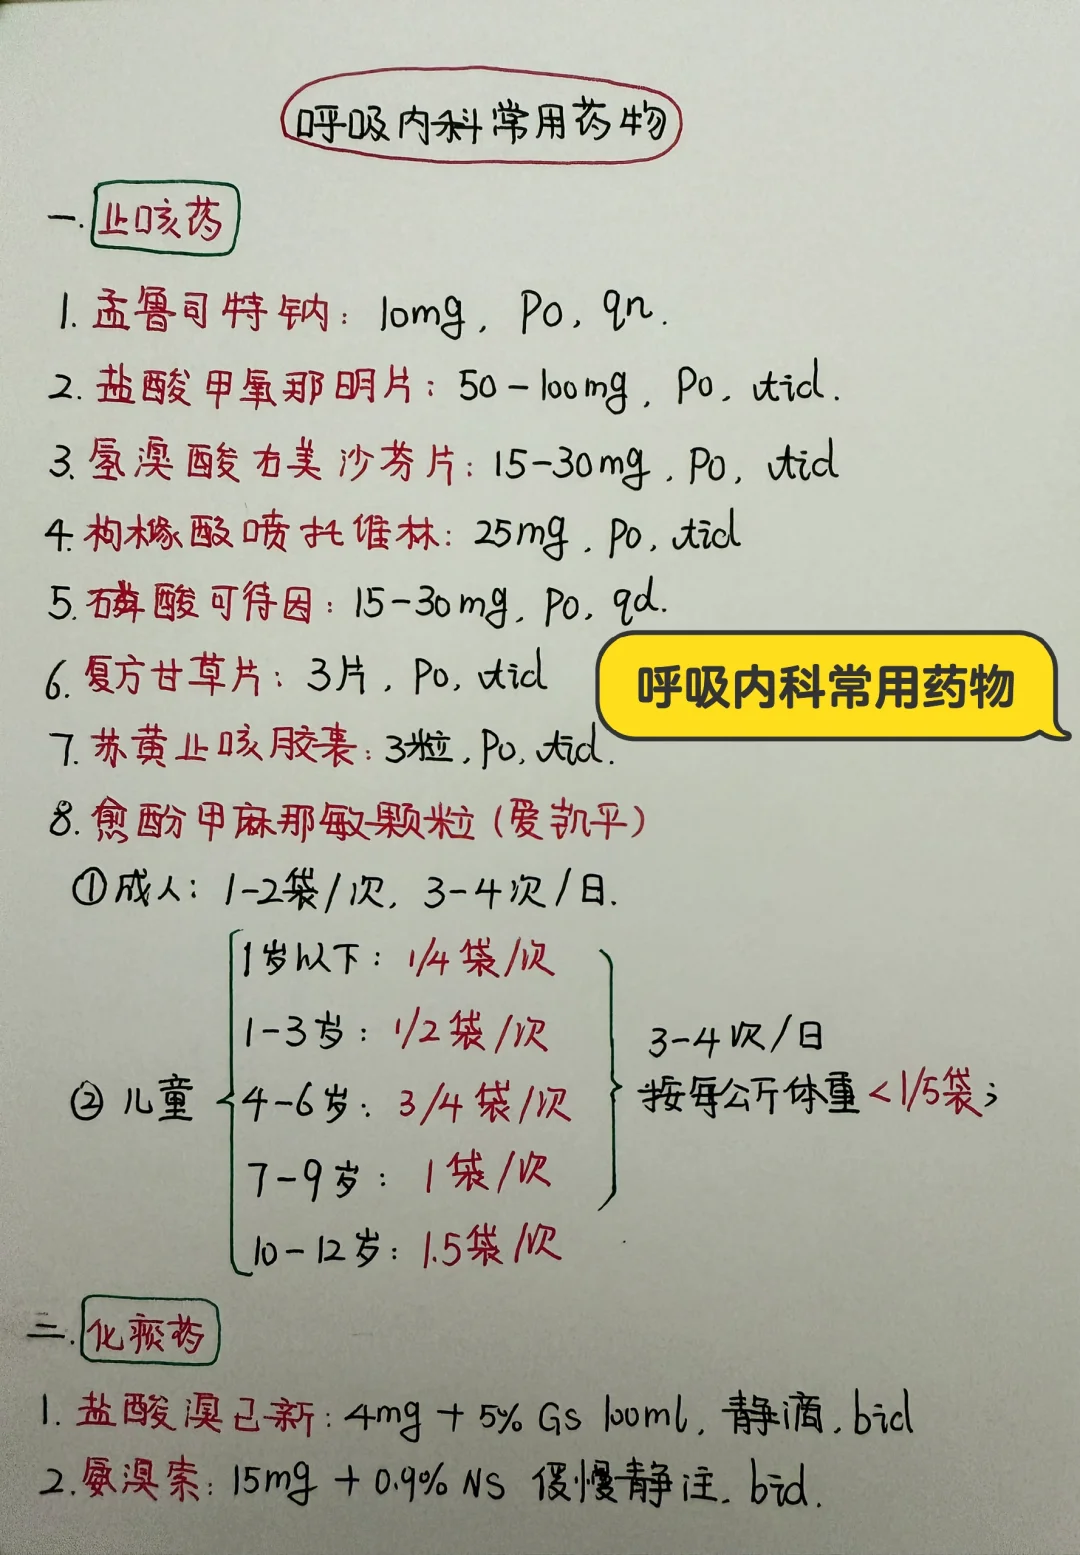 呼吸内科常用药物
一. 止咳药
1. 孟鲁司特钠: 10mg, Po, qn.
2. 盐酸甲氧那明片: 50-100mg, Po, tid.
3. 氢溴酸右美沙芬片: 15-30mg, Po, tid
4. 枸橼酸喷托维林: 25mg, Po, tid
5. 磷酸可待因: 15-30mg, Po, qd.
6. 复方甘草片: 3片, Po, tid
呼吸内科常用药物
7. 苏黄止咳胶囊: 3粒, Po, tid.
8. 愈酚甲麻那敏颗粒(爱凯平)
①成人: 1-2袋/次, 3-4次/日.
②儿童
1岁以下: 1/4袋/次
1-3岁: 1/2袋/次
4-6岁: 3/4袋/次
7-9岁: 1袋/次
10-12岁: 1.5袋/次
3-4次/日
按每公斤体重<1/5袋;
二. 化痰药
1. 盐酸溴己新: 4mg + 5% Gs 100ml, 静滴, bid
2. 氨溴索: 15mg + 0.9% NS 缓慢静注. bid.